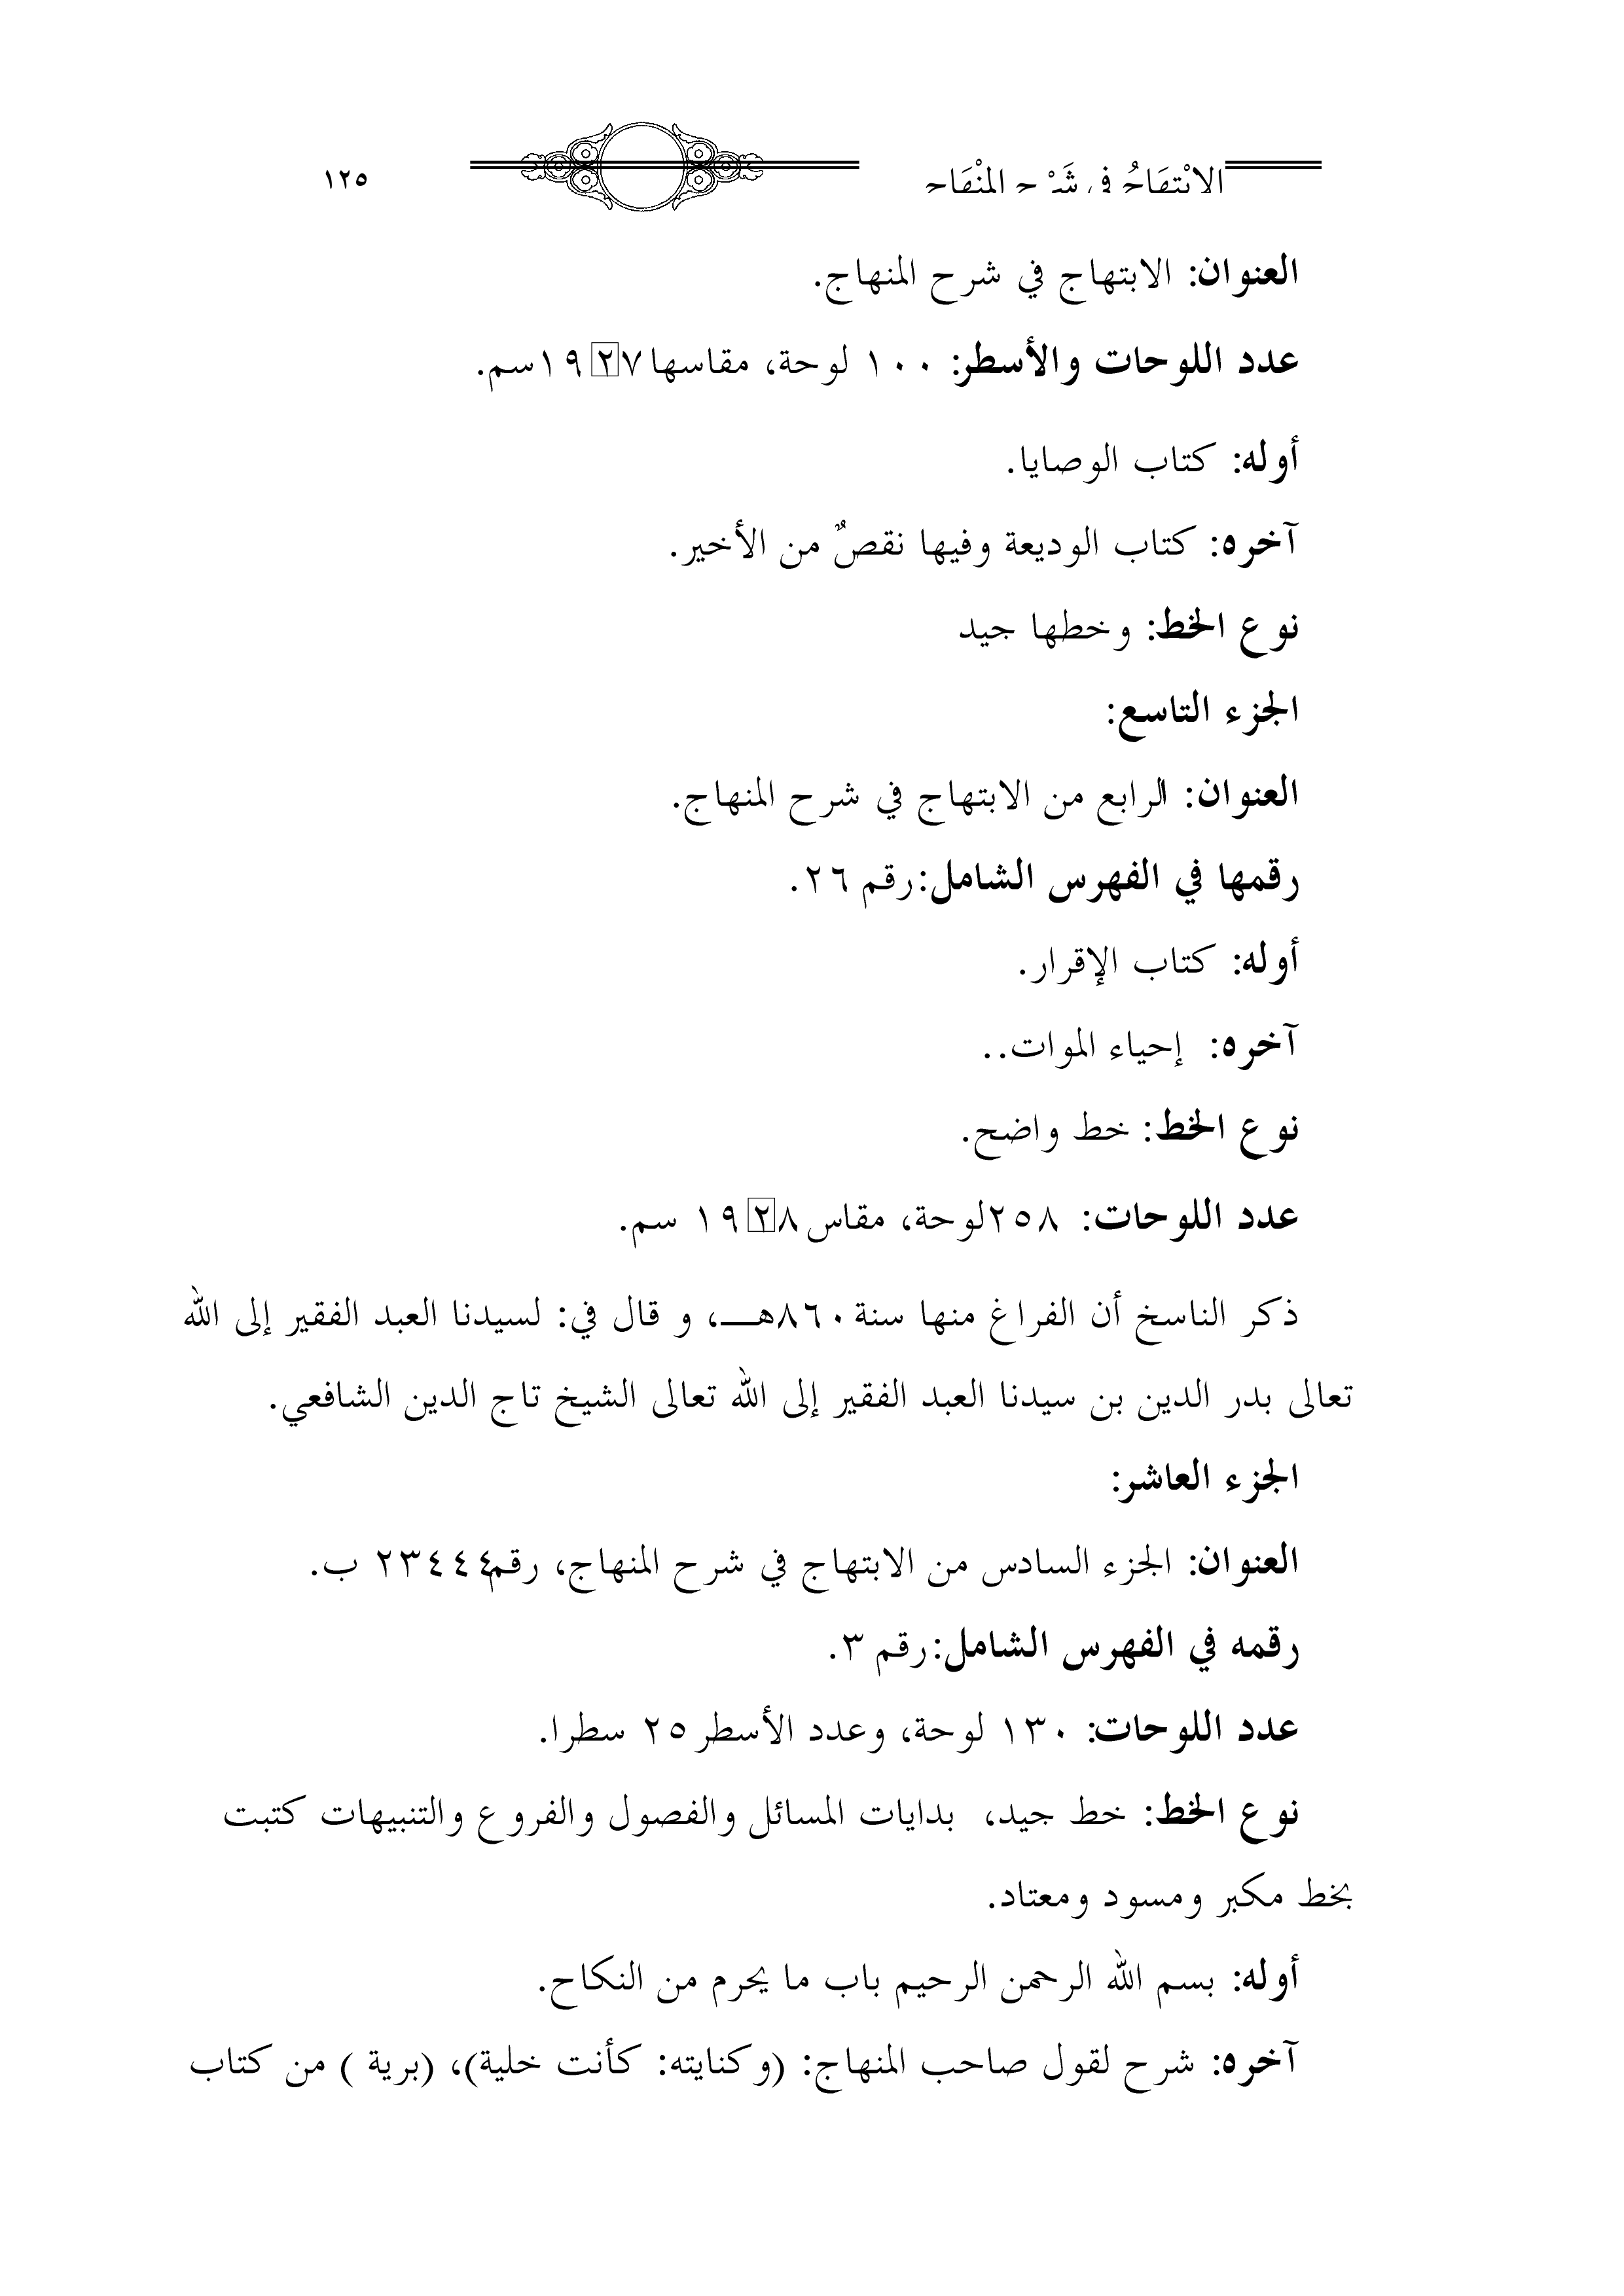 الابْتِهَاجُ في شَرْحِ المِنْهَاجِ ١٢٥
العنوان: الابتهاج في شرح المنهاج.
عدد اللوحات والأسطر: ١٠٠ لوحة، مقاسها ١٩٢٧سم.
أوله: كتاب الوصايا.
آخره: كتاب الوديعة وفيها نقصٌ من الأخير.
نوع الخط: وخطها جيد
الجزء التاسع:
العنوان: الرابع من الابتهاج في شرح المنهاج.
رقمها في الفهرس الشامل: رقم ٢٦.
أوله: كتاب الإقرار.
آخره: إحياء الموات..
نوع الخط: خط واضح.
عدد اللوحات: ٢٥٨لوحة، مقاس ١٩٢٨ سم.
ذكر الناسخ أن الفراغ منها سنة ٨٦٠هـ، و قال في: لسيدنا العبد الفقير إلى الله
تعالى بدر الدين بن سيدنا العبد الفقير إلى الله تعالى الشيخ تاج الدين الشافعي.
الجزء العاشر:
العنوان: الجزء السادس من الابتهاج في شرح المنهاج، رقم٢٣٤٤٤ ب.
رقمه في الفهرس الشامل: رقم ٣.
عدد اللوحات: ١٣٠ لوحة، وعدد الأسطر ٢٥ سطرا.
نوع الخط: خط جيد، بدايات المسائل والفصول والفروع والتنبيهات كتبت
بخط مكبر ومسود ومعتاد.
أوله: بسم الله الرحمن الرحيم باب ما يحرم من النكاح.
آخره: شرح لقول صاحب المنهاج: (وكنايته: كأنت خلية)، (برية ) من كتاب